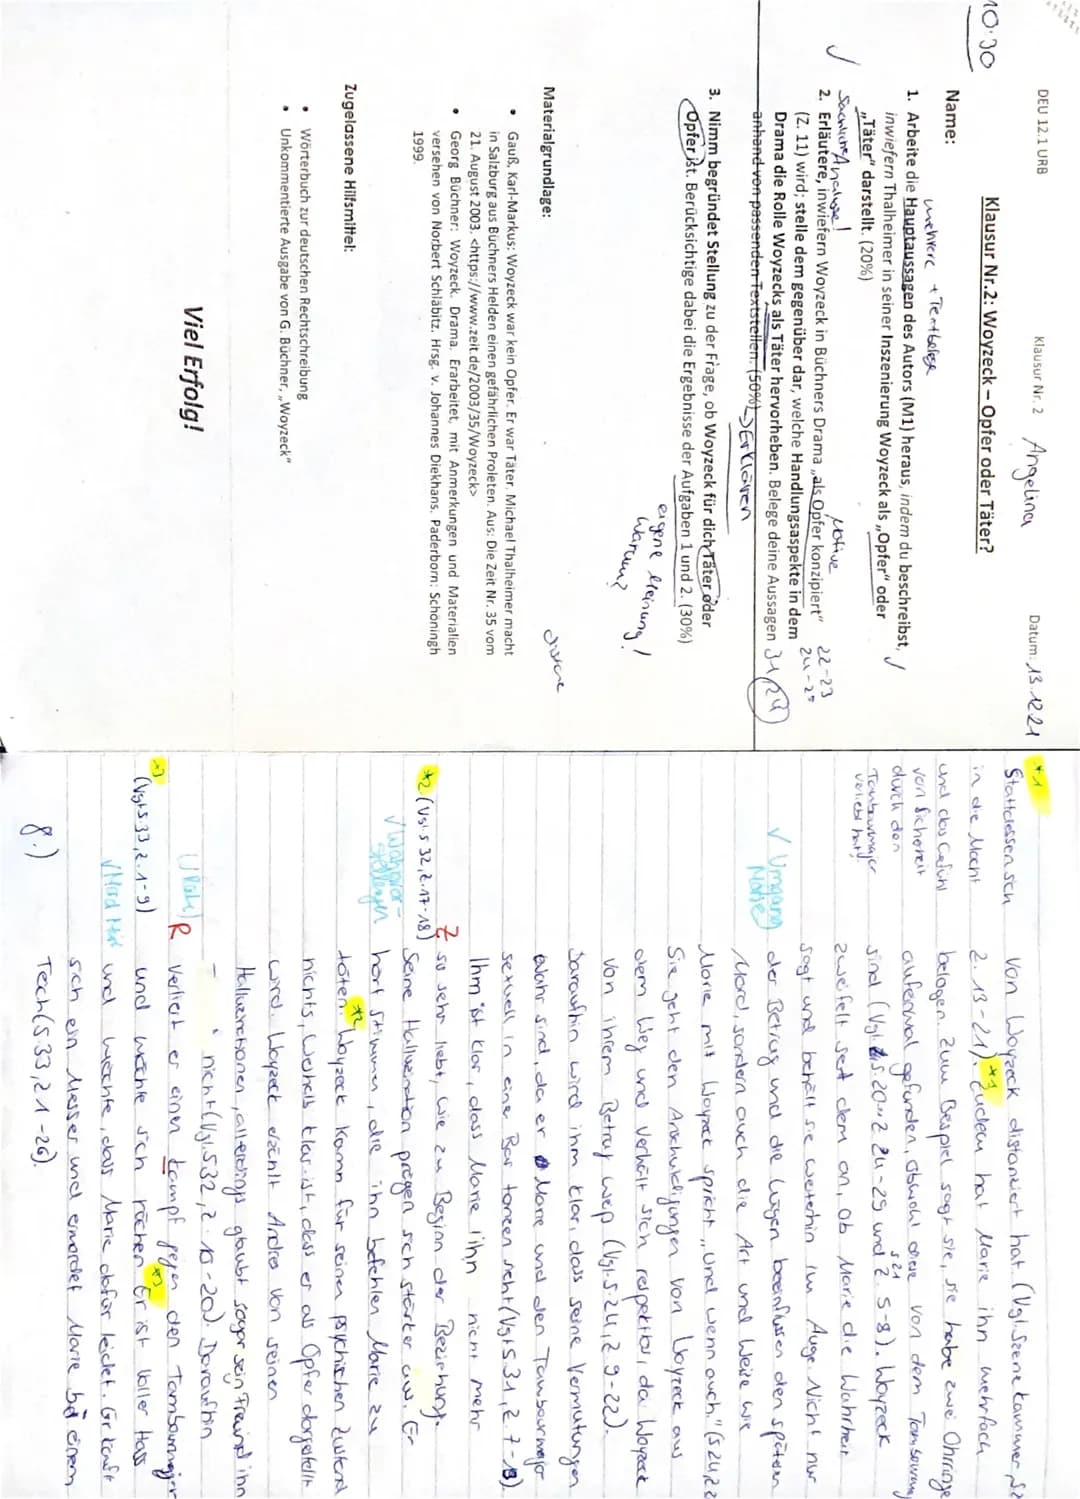 DEU 12.1 URB
Klausur Nr. 2
Angelina
Datum: 13.12.21
10:30
Klausur Nr.2: Woyzeck – Opfer oder Täter?
Name:
mehrere + Textbelege
1. Arbeite die Hauptaussagen des Autors (M1) heraus, indem du beschreibst,
inwiefern Thalheimer in seiner Inszenierung Woyzeck als „Opfer" oder
„Täter" darstellt. (20%)
Sachliche Analyse!
Motive
2. Erläutere, inwiefern Woyzeck in Büchners Drama „als Opfer konzipiert"
(Z. 11) wird; stelle dem gegenüber dar, welche Handlungsaspekte in dem
Drama die Rolle Woyzecks als Täter hervorheben. Belege deine Aussagen
anhand von passenden Textstellen. (50%) → Erklären
22-23
24-25
31, 24
3. Nimm begründet Stellung zu der Frage, ob Woyzeck für dich Täter oder
Opfer ist. Berücksichtige dabei die Ergebnisse der Aufgaben 1 und 2. (30%)
eigene Meinung!
Warum?
Materialgrundlage:
• Gauß, Karl-Markus: Woyzeck war kein Opfer. Er war Täter. Michael Thalheimer macht
in Salzburg aus Büchners Helden einen gefährlichen Proleten. Aus: Die Zeit Nr. 35 vom
21. August 2003. <https://www.zeit.de/2003/35/Woyzeck>
• Georg Büchner: Woyzeck. Drama. Erarbeitet, mit Anmerkungen und Materialien
versehen von Norbert Schläbitz. Hrsg. v. Johannes Diekhans. Paderborn: Schöningh
1999.
Zugelassene Hilfsmittel:
• Wörterbuch zur deutschen Rechtschreibung
• Unkommentierte Ausgabe von G. Büchner, „Woyzeck"
Viel Erfolg!
*1
Stattdessen sich
in die Macht
und das Gefühl
von Sicherheit
durch den
Tambourmajor
verliebt hat
von Woyzeck distanziert hat (Vgl. Szene Kammer, S2
Z. 13-21). *1 Zudem hat Marie ihn mehrfach
belogen. Zum Beispiel sagt sie, sie habe zwei Ohrringe
aufeinmal gefunden, obwohl diese von dem Tambourmajor
sind (Vgl. S. 20 Z. 24-25 und S21 Z. 5-8). Woyzeck
zweifelt seit dem an, ob Marie die Wahrheit
sagt und behält sie weiterhin im Auge. Nicht nur
√ Umgang Marie
der Betrug und die Lügen beeinflussen den späteren
Mord, sondern auch die Art und Weise wie
Marie mit Woyzeck spricht „Und wenn auch." (S 24, Z 2
Sie geht den Anschuldigungen von Woyzeck aus
dem Weg und verhält sich respektlos, da Woyzeck
von ihrem Betrug weiß (Vgl. S. 24, Z 9-22).
Daraufhin wird ihm klar, dass seine Vermutungen
wahr sind, da er Marie und den Tambourmajor
sexuell in einer Bar tanzen sieht (Vgl. S. 31, Z 7-13).
Ihm ist klar, dass Marie ihn nicht mehr
Z so sehr liebt, wie zu Beginn der Beziehung.
*2 (Vgl. S 32, Z. 17-18)
Seine Halluzination prägen sich stärker aus. Er
√ Wahnvorstellungen
hört Stimmen, die ihn befehlen Marie zu
töten. *2 Woyzeck kann für seinen psychischen Zustand
nichts, weshalb klar ist, dass er als Opfer dargestellt
wird. Woyzeck erzählt Andres von seinen
Halluzinationen, allerdings glaubt sogar sein Freund ihn
nicht (Vgl. S32, Z. 10-20). Daraufhin
R verliert er einen kampf gegen den Tambourmajor
*3 (Vgl. S. 33, Z. 1-9)
und möchte sich rächen. *3 Er ist voller Hass
√ Mord
und möchte, dass Marie dafür leidet. Er kauft
sich ein Messer und ermordet Marie bei einem
Teich (S. 33, 21-26).
8.)